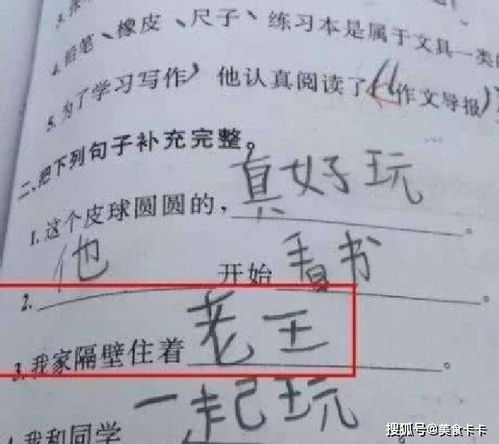 4.铅笔、橡皮、尺子、练习本是属于文具一类的
5.为了学习写作》他认真阅读了《《作文导报》
二、把下列句子补充完整。
1.这个皮球圆圆的，真好玩。
2.他开始看书。
3.我家隔壁住着老王。
4.我和同学一起玩
搜狐号@美食卡卡